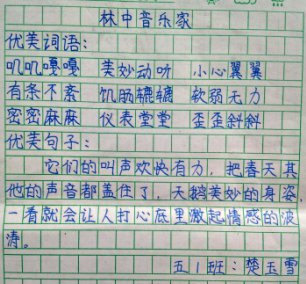 林中音乐家
优美词语：
叽叽嘎嘎 美妙动听 小心翼翼
有条不紊 饥肠辘辘 软弱无力
密密麻麻 仪表堂堂 歪歪斜斜
优美句子：
它们的叫声欢快有力，把春天其
他的声音都盖住了，天鹅美妙的身姿，
一看就会让人打心底里激起情感的波
清。
五1班：楚玉雪